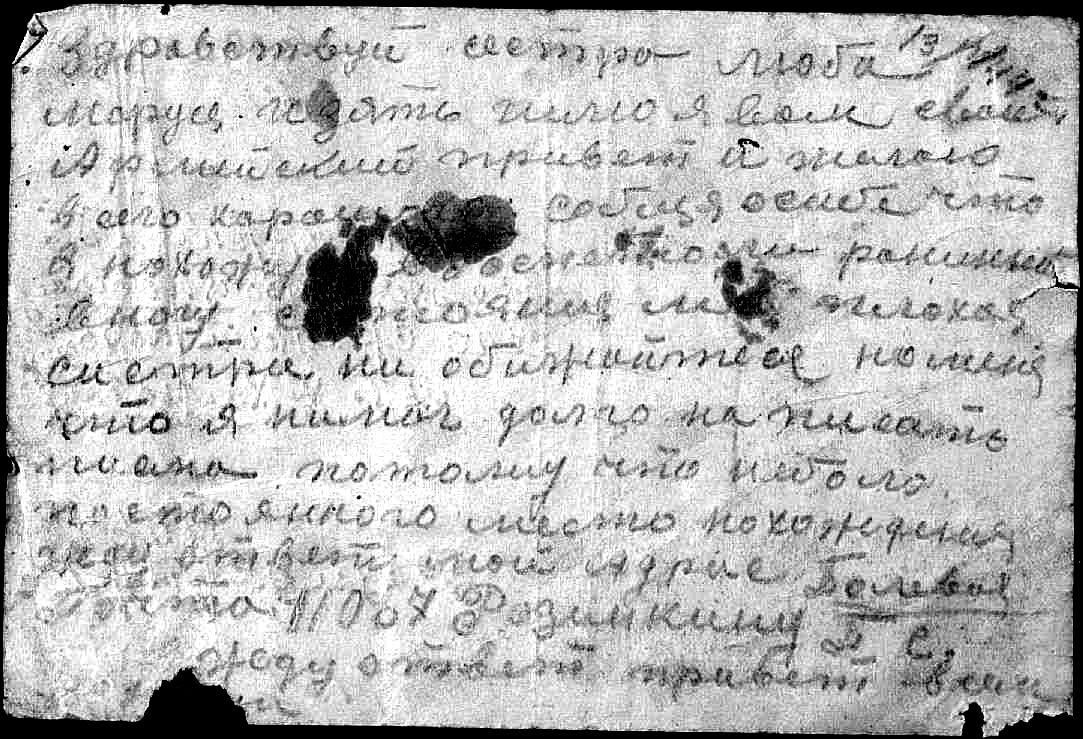 Здравствуй систра Люба 13
Маруц и зять пишю я вам свой
Армейский привет и желаю
всего харошего собщя осибе что
я нахожу раниный
вногу состояния плохая
систра ни обижайтесь номеня
что я нимог долго написать
писма потому что неболо
постоянного место нахождения
жду ответ мой адрас Полевая
Почта 11067 Розимкину П. С.
жду ответ привет всем